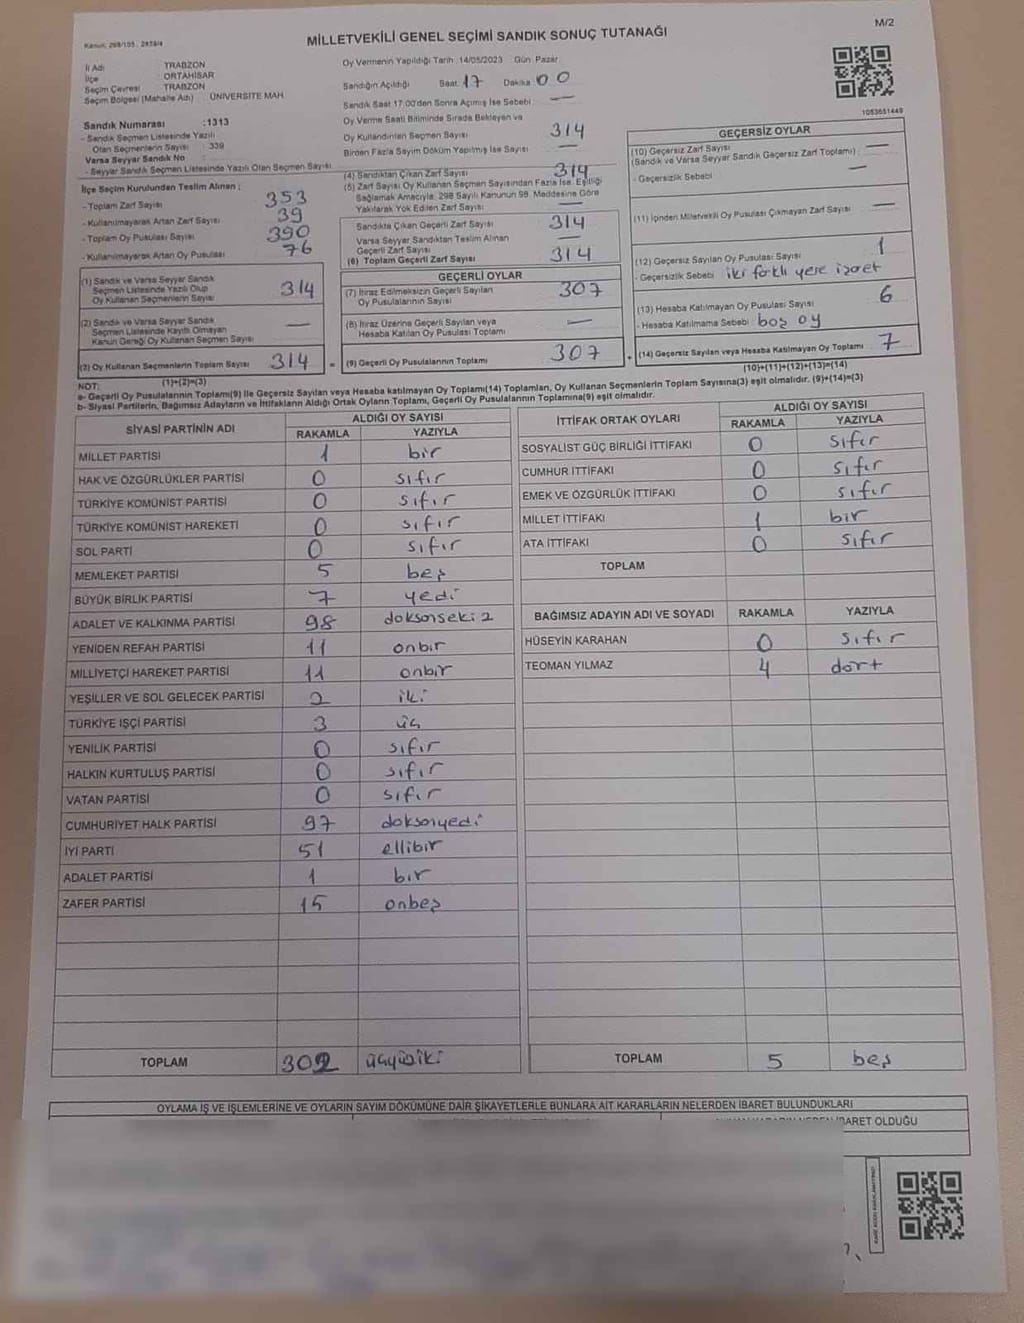 M/2
Kanun: 298/105 , 2839/4
MİLLETVEKİLİ GENEL SEÇİMİ SANDIK SONUÇ TUTANAĞI
İl Adı TRABZON
İlçe ORTAHİSAR
Seçim Çevresi TRABZON
Seçim Bölgesi (Mahalle Adı) : ÜNİVERSİTE MAH.
Sandık Numarası :1313
- Sandık Seçmen Listesinde Yazılı
Olan Seçmenlerin Sayısı : 339
Varsa Seyyar Sandık No :
- Seyyar Sandık Seçmen Listesinde Yazılı Olan Seçmen Sayısı
İlçe Seçim Kurulundan Teslim Alınan ;
- Toplam Zarf Sayısı 353
- Kullanılmayarak Artan Zarf Sayısı 39
- Toplam Oy Pusulası Sayısı 390
- Kullanılmayarak Artan Oy Pusulası 76
(1) Sandık ve Varsa Seyyar Sandık
Seçmen Listesinde Yazılı Olup
Oy Kullanan Seçmenlerin Sayısı 314
(2) Sandık ve Varsa Seyyar Sandık
Seçmen Listesinde Kayıtlı Olmayan
Kanun Gereği Oy Kullanan Seçmen Sayısı —
(3) Oy Kullanan Seçmenlerin Toplam Sayısı 314 =
(1)+(2)=(3)
Oy Vermenin Yapıldığı Tarih :14/05/2023 Gün: Pazar
Sandığın Açıldığı Saat: 17 Dakika: 00
Sandık Saat 17:00'den Sonra Açılmış İse Sebebi : —
Oy Verme Saati Bitiminde Sırada Bekleyen ve
Oy Kullandırılan Seçmen Sayısı 314
Birden Fazla Sayım Döküm Yapılmış İse Sayısı —
(4) Sandıktan Çıkan Zarf Sayısı 314
(5) Zarf Sayısı Oy Kullanan Seçmen Sayısından Fazla İse, Eşitliği
Sağlamak Amacıyla, 298 Sayılı Kanunun 98. Maddesine Göre
Yakılarak Yok Edilen Zarf Sayısı —
Sandıkta Çıkan Geçerli Zarf Sayısı 314
Varsa Seyyar Sandıktan Teslim Alınan
Geçerli Zarf Sayısı —
(6) Toplam Geçerli Zarf Sayısı 314
GEÇERLİ OYLAR
(7) İtiraz Edilmeksizin Geçerli Sayılan
Oy Pusulalarının Sayısı 307
(8) İtiraz Üzerine Geçerli Sayılan veya
Hesaba Katılan Oy Pusulası Toplamı —
(9) Geçerli Oy Pusulalarının Toplamı 307 +
1053651449
GEÇERSİZ OYLAR
(10) Geçersiz Zarf Sayısı —
(Sandık ve Varsa Seyyar Sandık Geçersiz Zarf Toplamı) :
- Geçersizlik Sebebi : —
(11) İçinden Milletvekili Oy Pusulası Çıkmayan Zarf Sayısı —
(12) Geçersiz Sayılan Oy Pusulası Sayısı 1
- Geçersizlik Sebebi : iki farklı yere işaret
(13) Hesaba Katılmayan Oy Pusulası Sayısı 6
- Hesaba Katılmama Sebebi : boş oy
(14) Geçersiz Sayılan veya Hesaba Katılmayan Oy Toplamı 7
(10)+(11)+(12)+(13)=(14)
NOT:
a- Geçerli Oy Pusulalarının Toplamı(9) ile Geçersiz Sayılan veya Hesaba katılmayan Oy Toplamı(14) Toplamları, Oy Kullanan Seçmenlerin Toplam Sayısına(3) eşit olmalıdır. (9)+(14)=(3)
b- Siyasi Partilerin, Bağımsız Adayların ve İttifakların Aldığı Ortak Oyların Toplamı, Geçerli Oy Pusulalarının Toplamına(9) eşit olmalıdır.
SİYASİ PARTİNİN ADI ALDIĞI OY SAYISI
RAKAMLA YAZIYLA
MİLLET PARTİSİ 1 bir
HAK VE ÖZGÜRLÜKLER PARTİSİ 0 sıfır
TÜRKİYE KOMÜNİST PARTİSİ 0 sıfır
TÜRKİYE KOMÜNİST HAREKETİ 0 sıfır
SOL PARTİ 0 sıfır
MEMLEKET PARTİSİ 5 beş
BÜYÜK BİRLİK PARTİSİ 7 yedi
ADALET VE KALKINMA PARTİSİ 98 doksansekiz
YENİDEN REFAH PARTİSİ 11 onbir
MİLLİYETÇİ HAREKET PARTİSİ 11 onbir
YEŞİLLER VE SOL GELECEK PARTİSİ 2 iki
TÜRKİYE İŞÇİ PARTİSİ 3 üç
YENİLİK PARTİSİ 0 sıfır
HALKIN KURTULUŞ PARTİSİ 0 sıfır
VATAN PARTİSİ 0 sıfır
CUMHURİYET HALK PARTİSİ 97 doksanyedi
İYİ PARTİ 51 ellibir
ADALET PARTİSİ 1 bir
ZAFER PARTİSİ 15 onbeş
TOPLAM 302 üçyüziki
İTTİFAK ORTAK OYLARI ALDIĞI OY SAYISI
RAKAMLA YAZIYLA
SOSYALİST GÜÇ BİRLİĞİ İTTİFAKI 0 sıfır
CUMHUR İTTİFAKI 0 sıfır
EMEK VE ÖZGÜRLÜK İTTİFAKI 0 sıfır
MİLLET İTTİFAKI 1 bir
ATA İTTİFAKI 0 sıfır
TOPLAM
BAĞIMSIZ ADAYIN ADI VE SOYADI RAKAMLA YAZIYLA
HÜSEYİN KARAHAN 0 sıfır
TEOMAN YILMAZ 4 dört
TOPLAM 5 beş
OYLAMA İŞ VE İŞLEMLERİNE VE OYLARIN SAYIM DÖKÜMÜNE DAİR ŞİKAYETLERLE BUNLARA AİT KARARLARIN NELERDEN İBARET BULUNDUKLARI
İBARET OLDUĞU